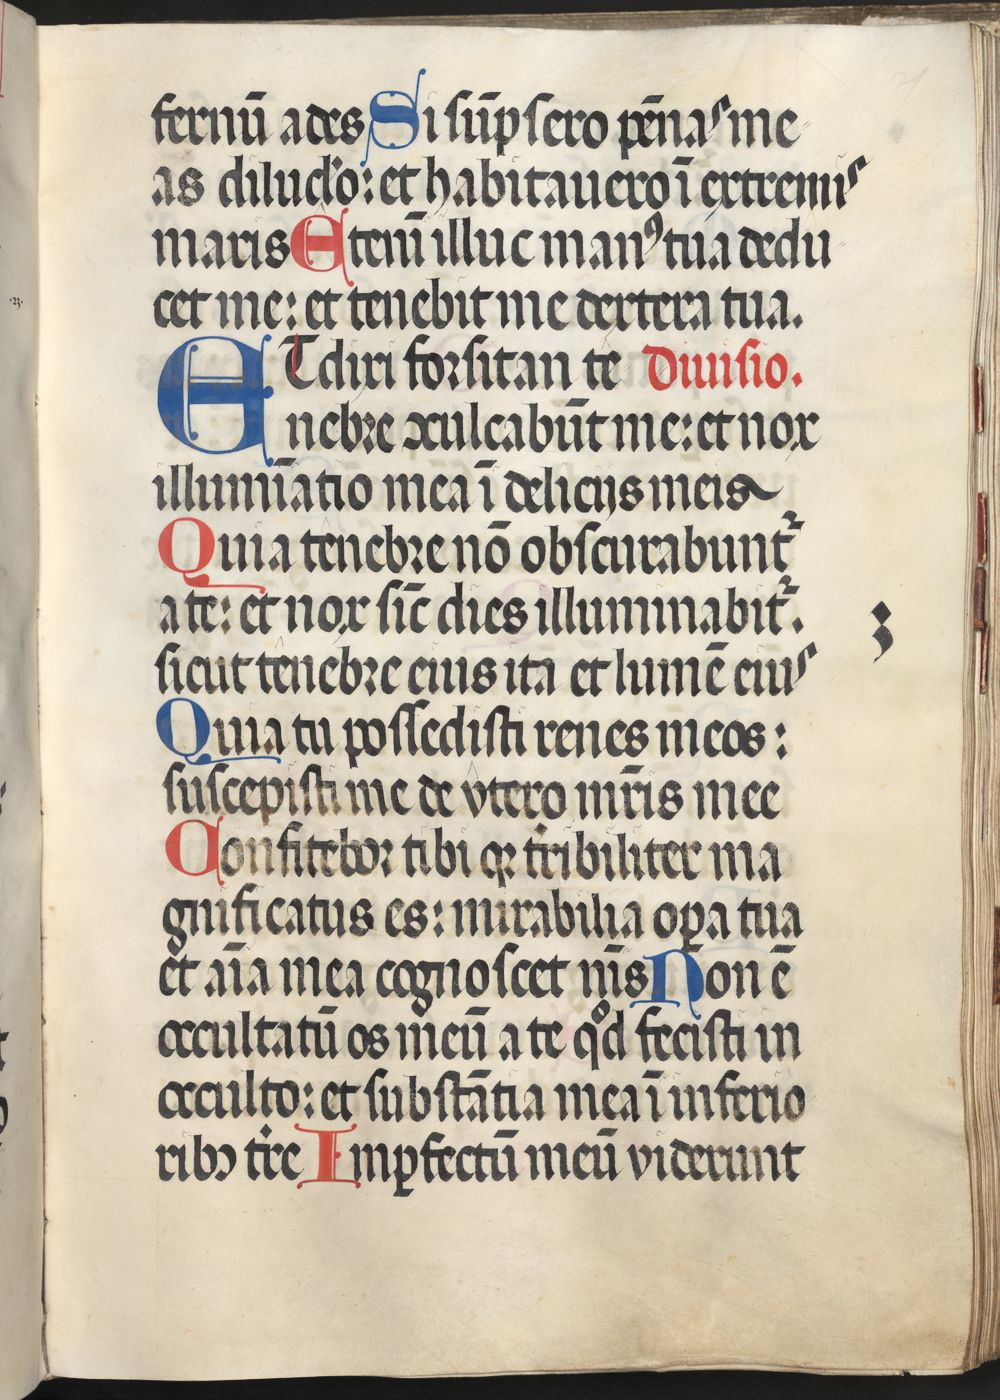 fernū ades Si sūpsero pēnas me
as diluc̄lo: et habitauero ī extremis
maris Etenī illuc manꝰ tua dedu
cet me: et tenebit me dextera tua.
ET dixi forsitan te Diuisio.
nebre ↄculcabūt me: et nox
illumīatio mea ī delicijs meis
Quia tenebre nō obscurabunt᷑
a te: et nox sic̄ dies illuminabit᷑.
sicut tenebre eius ita et lumē eius
Quia tu possedisti renes meos:
suscepisti me de vtero mr̄is mee
Confitebor tibi qꝛ tr̄ibiliter ma
gnificatus es: mirabilia oꝑa tua
et aīa mea cognoscet nīs Non ē
occultatū os meū a te qͦd fecisti in
occulto: et substātia mea ī inferio
ribꝫ tr̄re Imꝑfectū meū viderunt